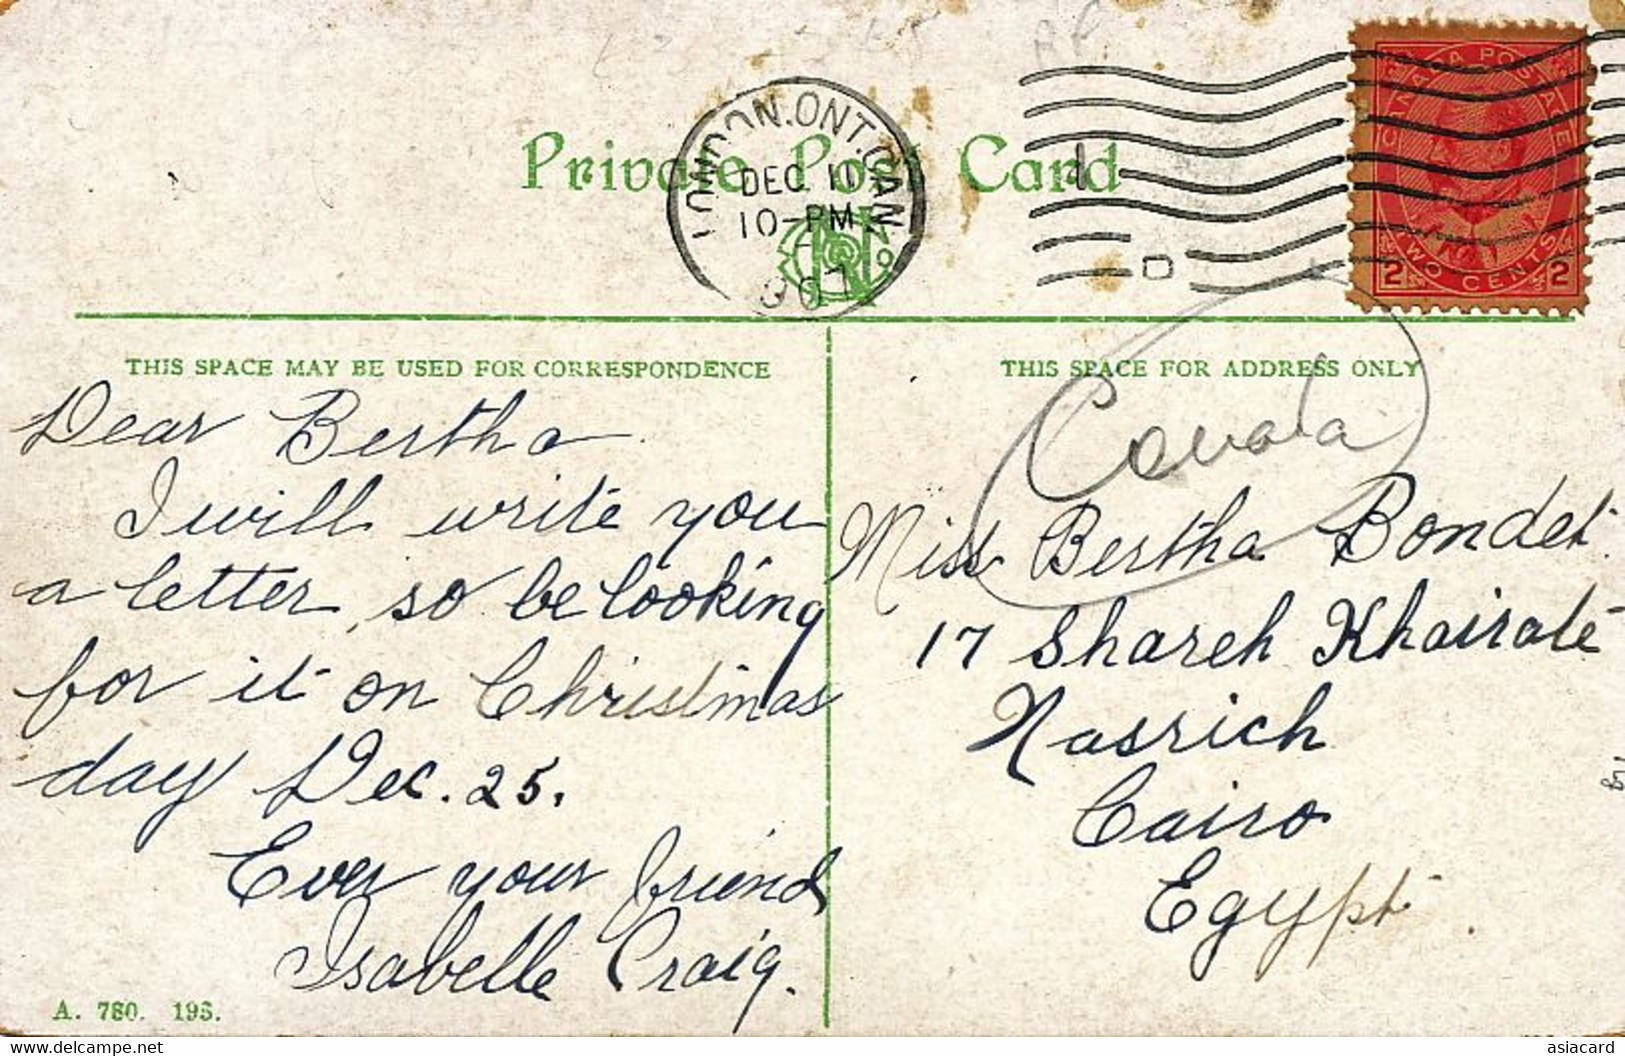 Private Post Card
LONDON. ONT. CAN.
DEC 11
10-PM
907
1
D
CANADA POSTAGE
2 TWO CENTS 2
THIS SPACE MAY BE USED FOR CORRESPONDENCE
Dear Bertha
I will write you
a letter, so be looking
for it on Christmas
day Dec. 25.
Ever your friend
Isabelle Craig.
A. 780. 193.
THIS SPACE FOR ADDRESS ONLY
Canada
Miss Bertha Bondet
17 Shareh Khairate
Nasrich
Cairo
Egypt
www.delcampe.net
asiacard